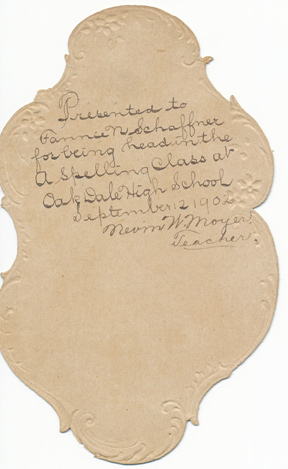 Presented to
Fannie N Schaffner
for being head in the
A Spelling Class at
Oak Dale High School
September 12 1902
Nevin W. Moyer,
Teacher.